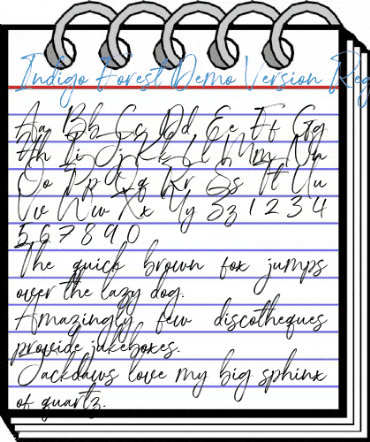 Indigo Forest Demo Version Reg
Aa Bb Cc Dd Ee Ff Gg
Hh Ii Jj Kk Ll Mm Nn
Oo Pp Qq Rr Ss Tt Uu
Vv Ww Xx Yy Zz 1 2 3 4
5 6 7 8 9 0
The quick brown fox jumps
over the lazy dog.
Amazingly few discotheques
provide jukeboxes.
Jackdaws love my big sphinx
of quartz.